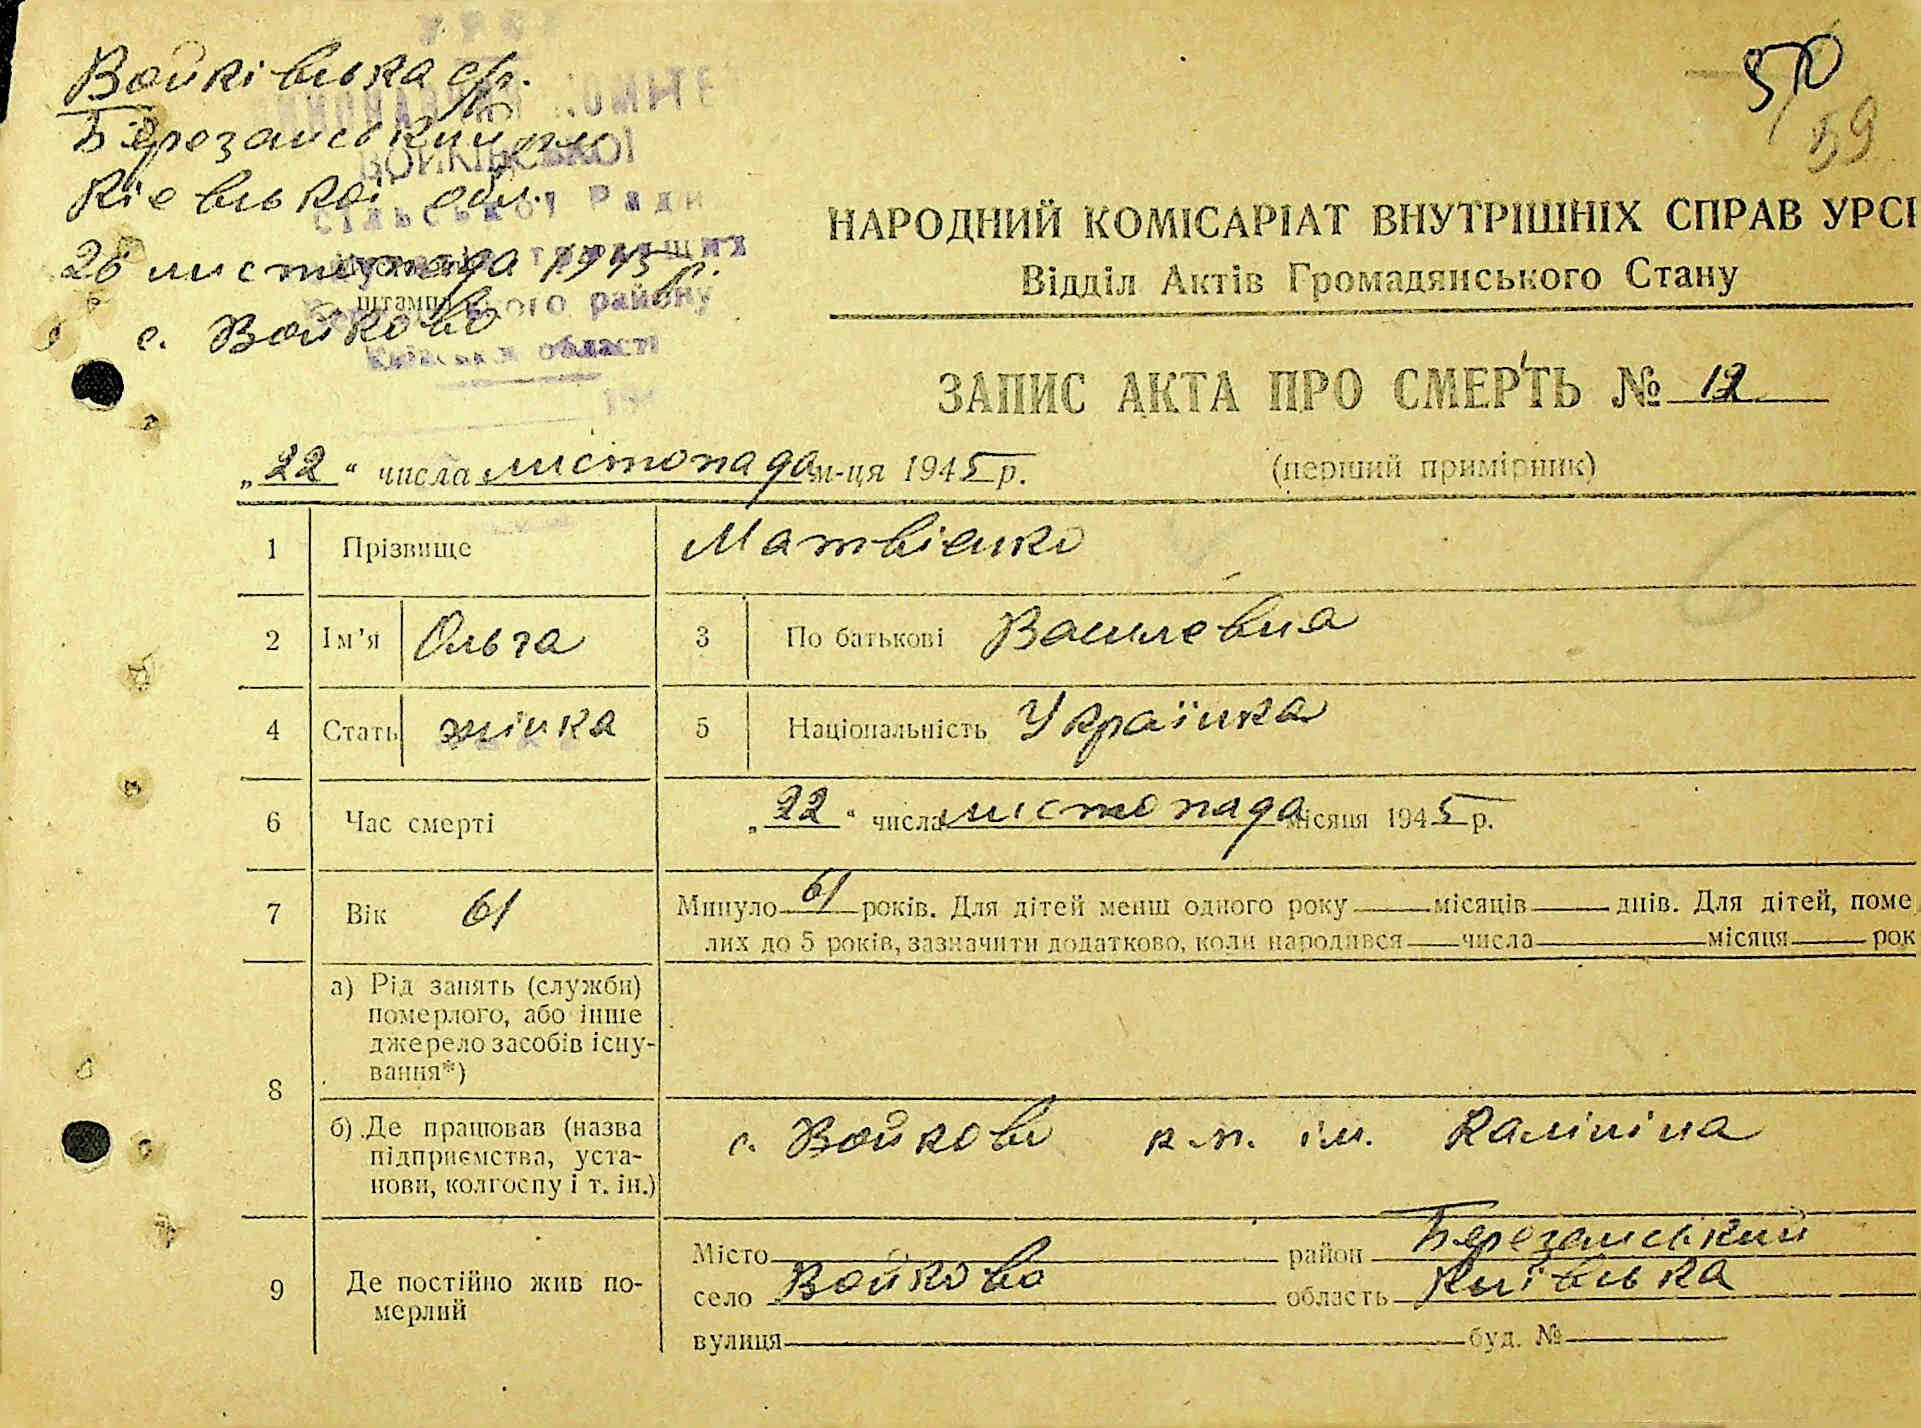 Войківська с/р.
Березанський р-н
Кієвської обл.
28 листопада 1945 р.
с. Войково
УРСР
ВОЙКІВСЬКОЇ
Сільської Ради
трудящих
району
Київської області
194
штамп
50
59
НАРОДНИЙ КОМІСАРІАТ ВНУТРІШНІХ СПРАВ УРСР
Відділ Актів Громадянського Стану
ЗАПИС АКТА ПРО СМЕРТЬ № 12
„22“ числа листопада м-ця 1945 р.
(перший примірник)
1 Прізвище Матвієнко
2 Ім'я Ольга 3 По батькові Василевна
4 Стать жінка 5 Національність Українка
6 Час смерті „22“ числа листопада місяця 1945 р.
7 Вік 61 Минуло 61 років. Для дітей менш одного року місяців днів. Для дітей, поме
лих до 5 років, зазначити додатково, коли народився числа місяця рок
8 а) Рід занять (служби)
померлого, або інше
джерело засобів існу-
вання*)
б) Де працював (назва
підприємства, уста-
нови, колгоспу і т. ін.)
с. Войково к-п. ім. Калініна
9 Де постійно жив по-
мерлий
Місто район Березанський
село Войково область Київська
вулиця буд. №